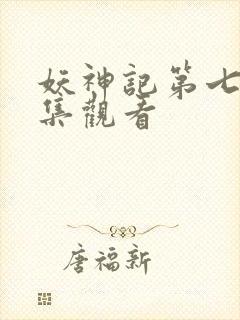 妖神記第七
集觀看
唐福新